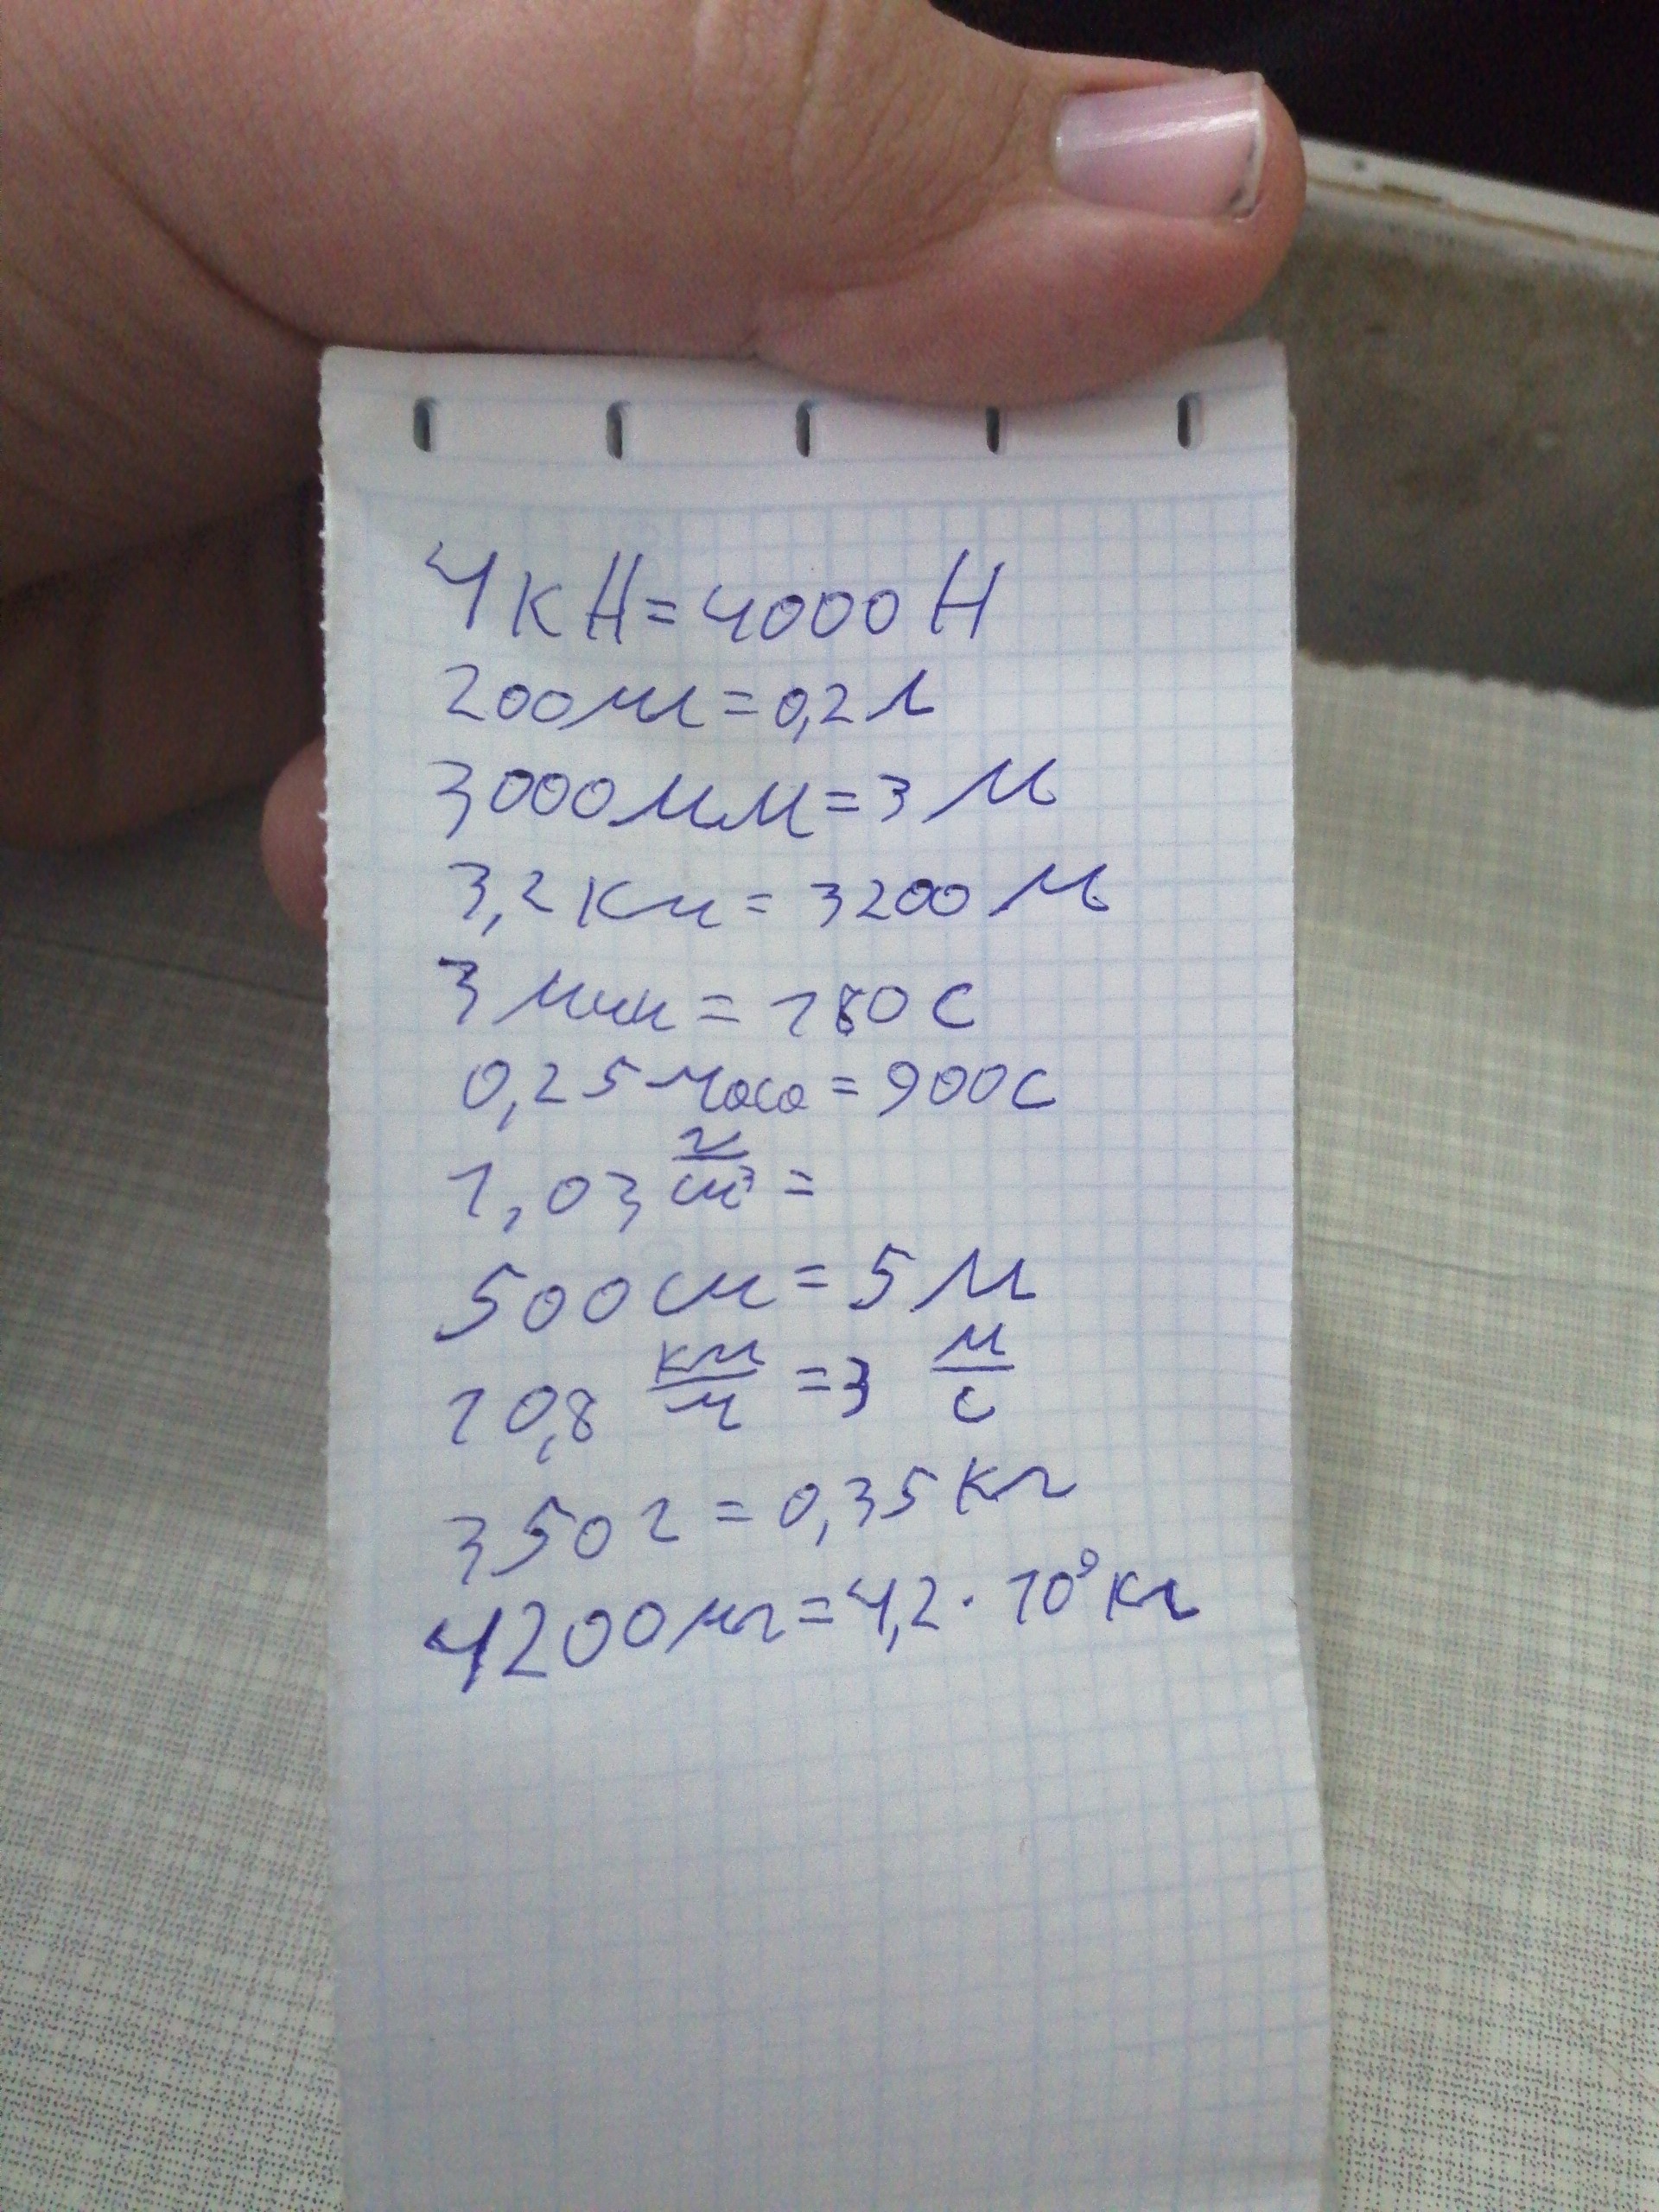 4 кН = 4000 Н
200 мл = 0,2 л
3000 мм = 3 м
3,2 км = 3200 м
3 мин = 180 с
0,25 часа = 900 с
1,03 г/см³ =
500 см = 5 м
10,8 км/ч = 3 м/с
350 г = 0,35 кг
4200 мг = 4,2 · 10⁹ кг